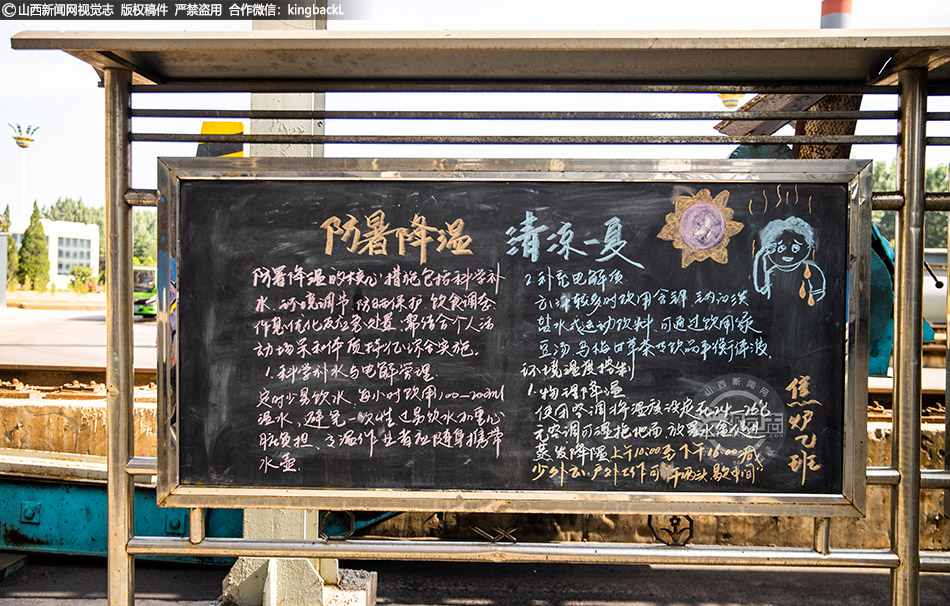 山西新闻网视觉志 版权稿件 严禁盗用 合作微信：kingbackL
防暑降温 清凉一夏
防暑降温的核心措施包括科学补
水、环境调节、防晒保护、饮食调整
作息优化及应急处置,需结合个人活
动场景和体质特征综合实施。
1.科学补水与电解管理
定时少量饮水,每小时饮用100-200ml
温水,避免一次性过量饮水加重心
脏负担,高温作业者应随身携带
水壶.
2.补充电解质
出汗较多时饮用含
盐水或运动饮料,可通过饮用绿
豆汤、乌梅甘草茶等饮品平衡体液.
环境温度控制
1.物理降温
使用空调将温度设定在24-26℃
无空调可湿拖地面 放置
蒸发降温 上午10:00至下午16:00减
少外出,户外工作可"干两头,歇中间"
焦炉乙班
山西新闻网